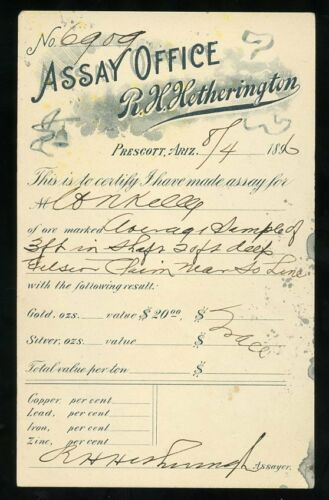 No 6909
ASSAY OFFICE
R.H. Hetherington
PRESCOTT, ARIZ. 8/4 1896
This is to certify I have made assay for
M
of ore marked Average Sample of
3 ft in Shaft 30 ft deep
Claim Near So Line
with the following result:
Gold, ozs. value $20.00, $ Trace
Silver, ozs. value $
Total value per ton $
Copper, per cent
Lead, per cent
Iron, per cent
Zinc, per cent
R H Hetherington Assayer.